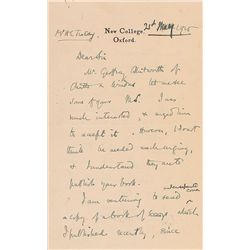 New College,
Oxford.
Dear Sir
Mr. Geoffrey Whitworth of
Chatto & Windus let me see
some of your MS. I was
much interested, & urged him
to accept it. However, I don't
think he needed much urging,
& I understand they are to
publish your book.
I am venturing to send
a copy of a book of Essays which
I published recently, since